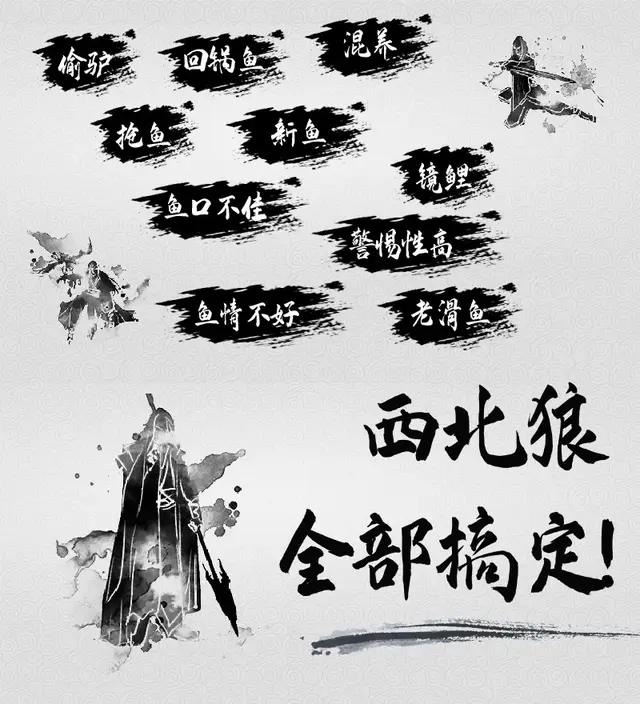 偷驴
回锅鱼
混养
抢鱼
新鱼
镜鲤
鱼口不佳
警惕性高
鱼情不好
老滑鱼
西北狼
全部搞定!